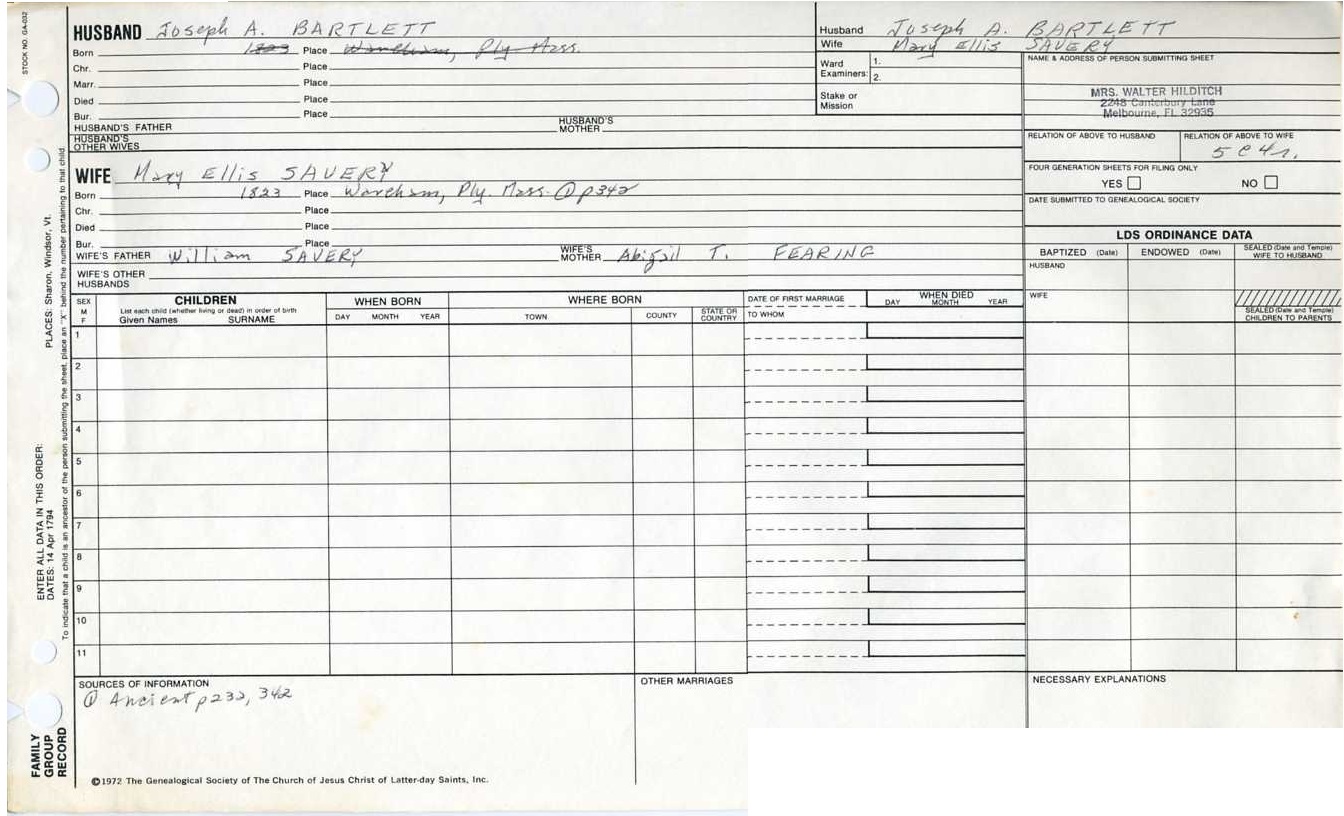 STOCK NO. GA-032
HUSBAND Joseph A. BARTLETT
Born 1823 Place Wareham, Ply. Mass.
Chr. Place
Marr. Place
Died Place
Bur. Place
HUSBAND'S FATHER HUSBAND'S MOTHER
HUSBAND'S OTHER WIVES
Husband Joseph A. BARTLETT
Wife Mary Ellis SAVERY
Ward Examiners: 1.
2.
Stake or Mission
NAME & ADDRESS OF PERSON SUBMITTING SHEET
MRS. WALTER HILDITCH
2248 Canterbury Lane
Melbourne, FL 32935
RELATION OF ABOVE TO HUSBAND RELATION OF ABOVE TO WIFE
5 C 4 r.
FOUR GENERATION SHEETS FOR FILING ONLY
YES NO
DATE SUBMITTED TO GENEALOGICAL SOCIETY
WIFE Mary Ellis SAVERY
Born 1823 Place Wareham, Ply. Mass. ① p342
Chr. Place
Died Place
Bur. Place
WIFE'S FATHER William SAVERY WIFE'S MOTHER Abigail T. FEARING
WIFE'S OTHER HUSBANDS
LDS ORDINANCE DATA
BAPTIZED (Date) ENDOWED (Date) SEALED (Date and Temple) WIFE TO HUSBAND
HUSBAND
WIFE
SEALED (Date and Temple) CHILDREN TO PARENTS
SEX M F
CHILDREN
List each child (whether living or dead) in order of birth
Given Names SURNAME
WHEN BORN
DAY MONTH YEAR
WHERE BORN
TOWN COUNTY STATE OR COUNTRY
DATE OF FIRST MARRIAGE
TO WHOM
WHEN DIED
DAY MONTH YEAR
1
2
3
4
5
6
7
8
9
10
11
SOURCES OF INFORMATION
① Ancient p232, 342
OTHER MARRIAGES
NECESSARY EXPLANATIONS
©1972 The Genealogical Society of The Church of Jesus Christ of Latter-day Saints, Inc.
FAMILY GROUP RECORD
ENTER ALL DATA IN THIS ORDER:
DATES: 14 Apr 1794
PLACES: Sharon, Windsor, Vt.
To indicate that a child is an ancestor of the person submitting the sheet, place an "X" behind the number pertaining to that child